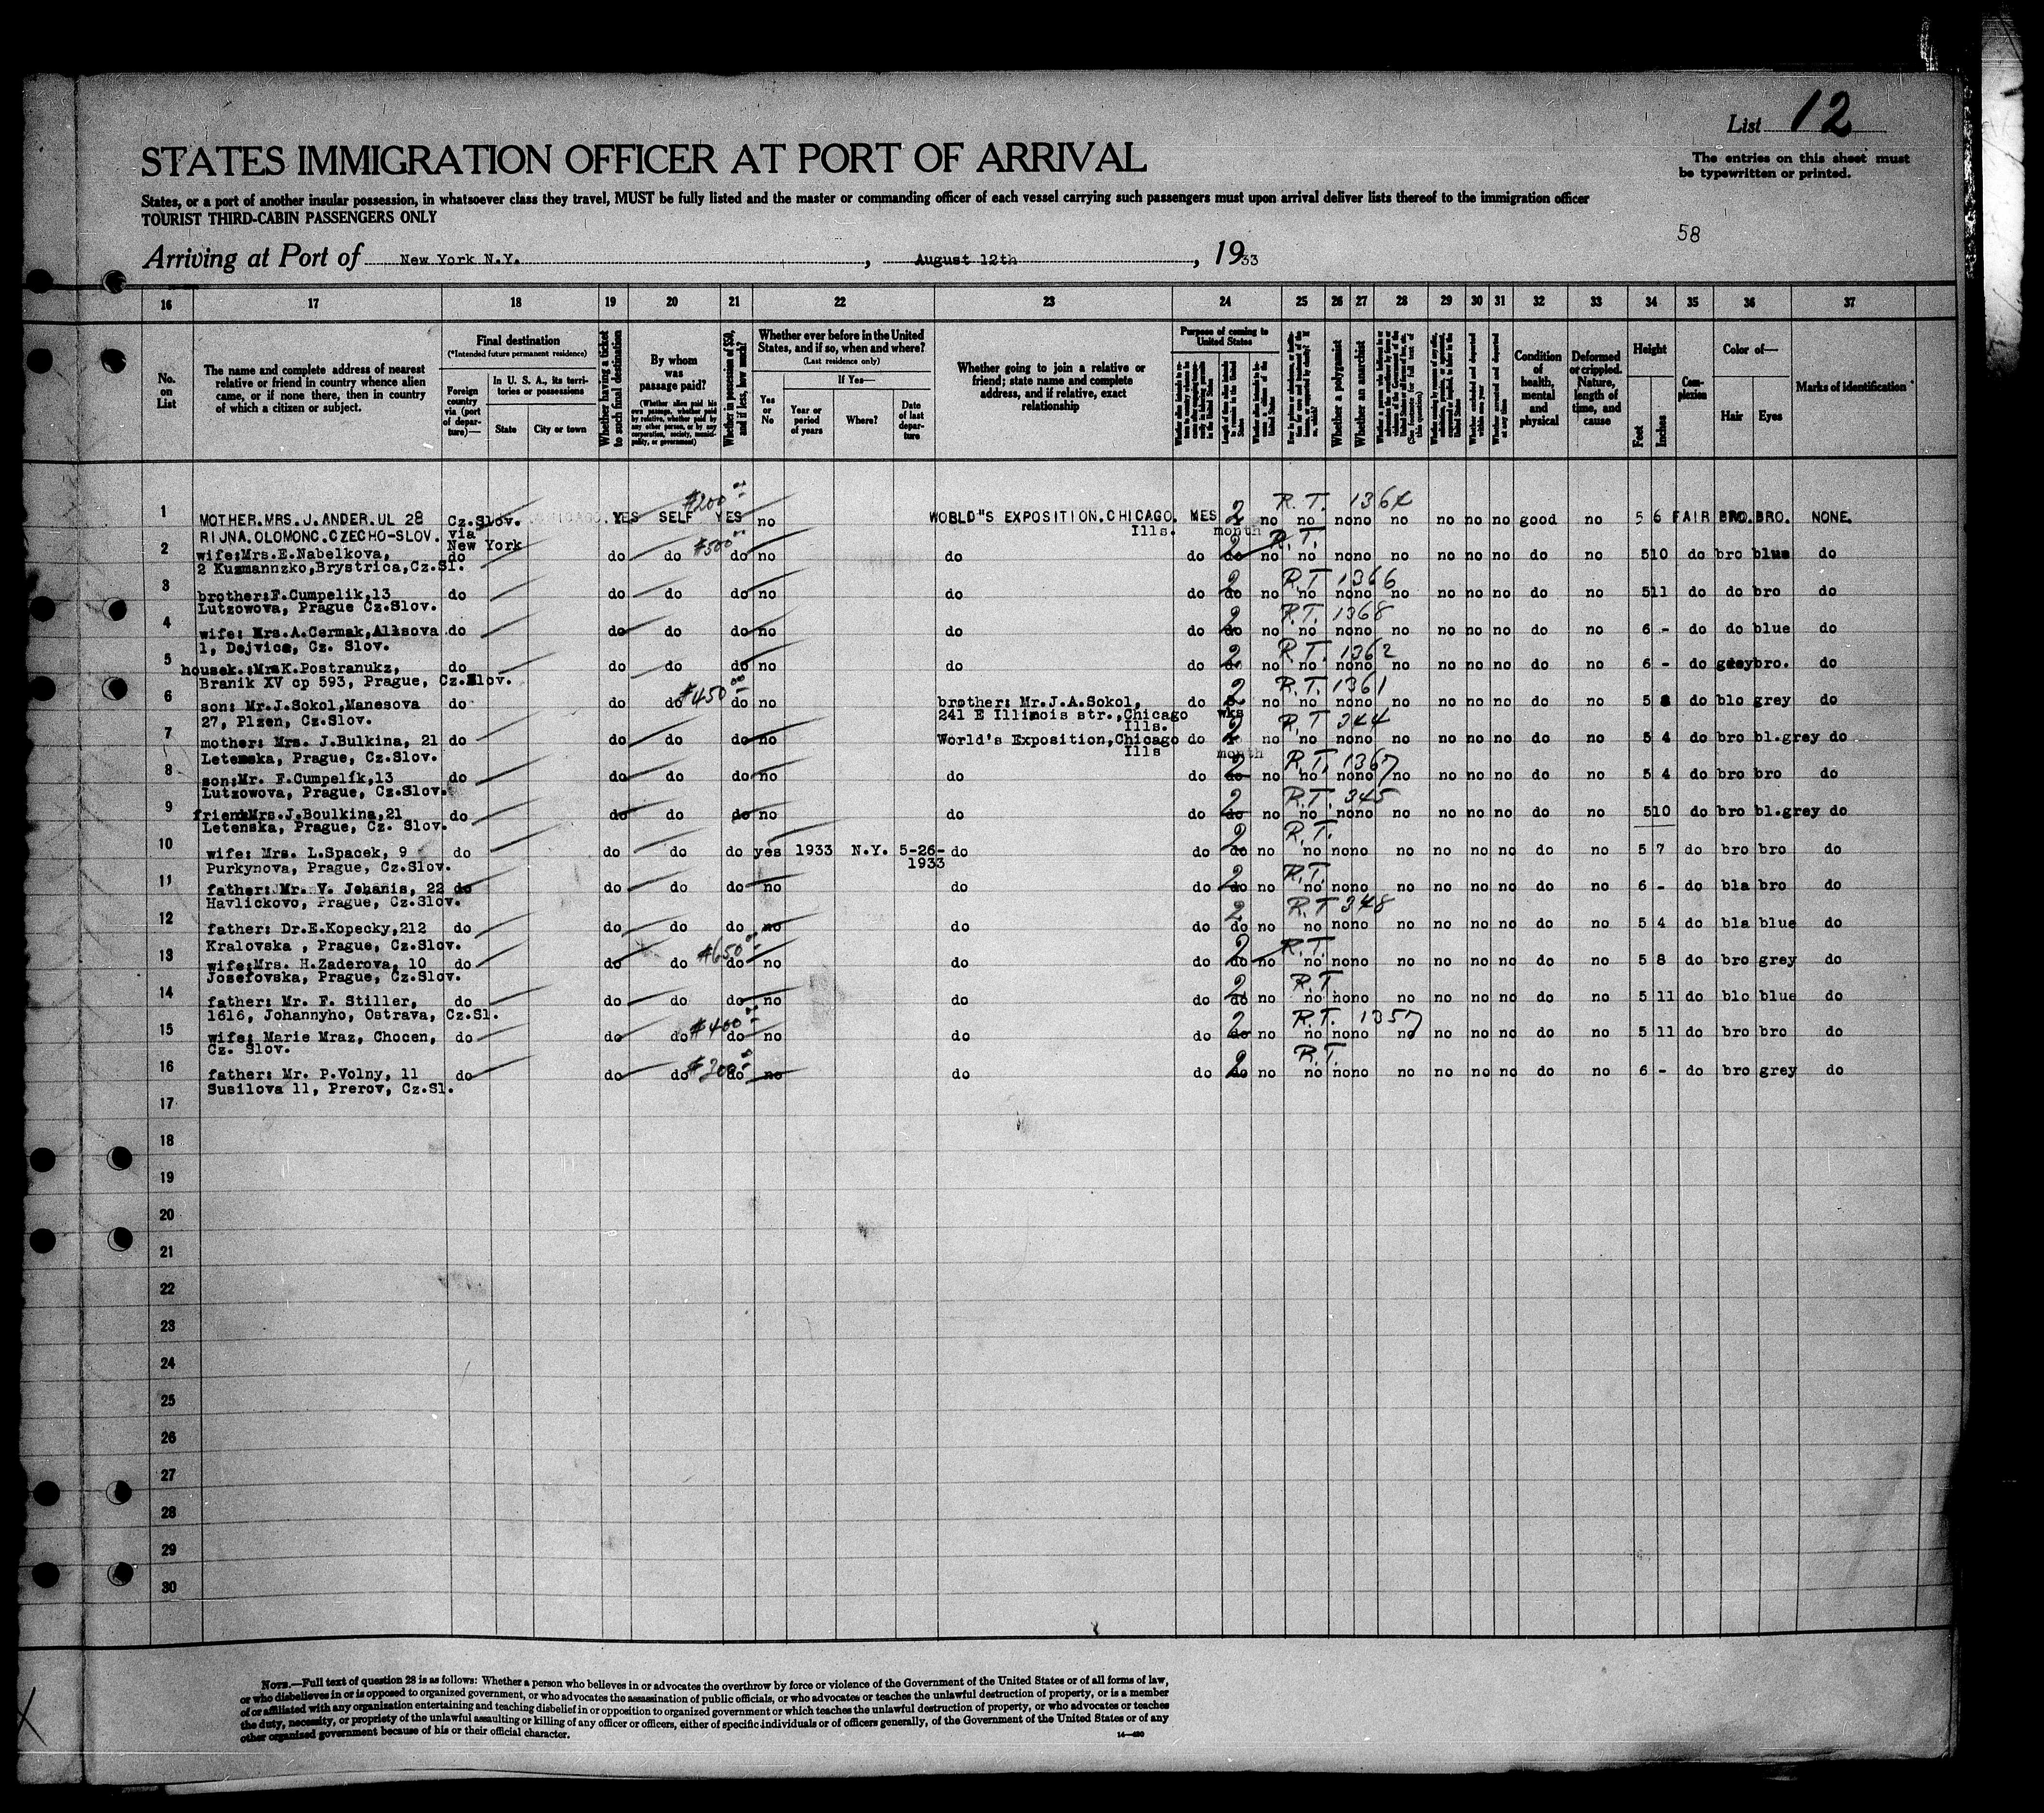 List 12
The entries on this sheet must
be typewritten or printed.
STATES IMMIGRATION OFFICER AT PORT OF ARRIVAL
States, or a port of another insular possession, in whatsoever class they travel, MUST be fully listed and the master or commanding officer of each vessel carrying such passengers must upon arrival deliver lists thereof to the immigration officer
TOURIST THIRD-CABIN PASSENGERS ONLY
58
Arriving at Port of New York N.Y. , August 12th , 1933
16 17 18 19 20 21 22 23 24 25 26 27 28 29 30 31 32 33 34 35 36 37
No. on List
The name and complete address of nearest
relative or friend in country whence alien
came, or if none there, then in country
of which a citizen or subject.
Final destination
(*Intended future permanent residence)
Foreign country via (port of departure)—
In U. S. A., its territories or possessions
State
City or town
Whether having a ticket to such final destination
By whom was passage paid?
(Whether alien paid his own passage, whether paid by relative, whether paid by any other person, or by any corporation, society, municipality, or government)
Whether in possession of $50, and if less, how much?
Whether ever before in the United States, and if so, when and where?
(Last residence only)
If Yes—
Yes or No
Year or period of years
Where?
Date of last departure
Whether going to join a relative or
friend; state name and complete
address, and if relative, exact
relationship
Purpose of coming to United States
Whether a polygamist
Whether an anarchist
Condition of health, mental and physical
Deformed or crippled. Nature, length of time, and cause
Height
Feet
Inches
Complexion
Color of—
Hair
Eyes
Marks of identification
1 MOTHER.MRS.J.ANDER.UL 28 Cz.Slov. CHICAGO. YES SELF $200 YES no WORLD"S EXPOSITION.CHICAGO. MES 2 no no R.T. 1364 nono no no no no good no 5 6 FAIR BRO. BRO. NONE.
RIJNA.OLOMONC.CZECHO-SLOV. via New York Ills. month
2 wife:Mrs.E.Nabelkova, do do do $500 do no do do 2 do no R.T. no nono no no no no do no 510 do bro blue do
2 Kusmannzko,Brystrica,Cz.Sl.
3 brother:F.Cumpelik,13 do do do do no do do 2 do no R.T. 1366 no nono no no no no do no 511 do do bro do
Lutzowova, Prague Cz.Slov.
4 wife: Mrs.A.Cermak,Allsova do do do do no do do 2 do no R.T. 1368 no nono no no no no do no 6 - do do blue do
1, Dejvice, Cz. Slov.
5 housek.:MrsK.Postranukz, do do do do no do do 2 do no R.T. 1362 no nono no no no no do no 6 - do grey bro. do
Branik XV cp 593, Prague, Cz.Slov.
6 son: Mr.J.Sokol,Manesova do do do $450 do no brother: Mr.J.A.Sokol, do 2 no R.T. 1361 no nono no no no no do no 5 8 do blo grey do
27, Plzen, Cz.Slov. 241 E Illinois str.,Chicago Ills. wks
7 mother: Mrs. J.Bulkina, 21 do do do do no World's Exposition,Chicago do 2 no R.T 344 no nono no no no no do no 5 4 do bro bl.grey do
Letenska, Prague, Cz.Slov. Ills month
8 son:Mr. F.Cumpelik,13 do do do do no do do 2 do no R.T. 1367 no nono no no no no do no 5 4 do bro bro do
Lutzowova, Prague, Cz.Slov.
9 friend:Mrs.J.Boulkina,21 do do do do no do do 2 do no R.T. 345 no nono no no no no do no 510 do bro bl.grey do
Letenska, Prague, Cz. Slov.
10 wife: Mrs. L.Spacek, 9 do do do do yes 1933 N.Y. 5-26-1933 do do 2 do no R.T. no nono no no no no do no 5 7 do bro bro do
Purkynova, Prague, Cz.Slov.
11 father: Mr. V. Jehanis, 22 do do do do no do do 2 do no R.T. no nono no no no no do no 6 - do bla bro do
Havlickovo, Prague, Cz.Slov.
12 father: Dr.E.Kopecky,212 do do do do no do do 2 do no R.T 348 no nono no no no no do no 5 4 do bla blue do
Kralovska , Prague, Cz.Slov.
13 wife:Mrs. H.Zaderova, 10 do do do $650 do no do do 2 do no R.T. no nono no no no no do no 5 8 do bro grey do
Josefovska, Prague, Cz.Slov.
14 father: Mr. F. Stiller, do do do do no do do 2 do no R.T no nono no no no no do no 5 11 do blo blue do
1616, Johannyho, Ostrava, Cz.Sl.
15 wife: Marie Mraz, Chocen, do do do $400 do no do do 2 do no R.T. 1357 no nono no no no no do no 5 11 do bro bro do
Cz. Slov.
16 father: Mr. P.Volny, 11 do do do $300 do no do do 2 do no R.T. no nono no no no no do no 6 - do bro grey do
Susilova 11, Prerov, Cz.Sl.
17
18
19
20
21
22
23
24
25
26
27
28
29
30
NOTE.—Full text of question 28 is as follows: Whether a person who believes in or advocates the overthrow by force or violence of the Government of the United States or of all forms of law,
or who disbelieves in or is opposed to organized government, or who advocates the assassination of public officials, or who advocates or teaches the unlawful destruction of property, or is a member
of or affiliated with any organization entertaining and teaching disbelief in or opposition to organized government or which teaches the unlawful destruction of property, or who advocates or teaches
the duty, necessity, or propriety of the unlawful assaulting or killing of any officer or officers, either of specific individuals or of officers generally, of the Government of the United States or of any
other organized government because of his or their official character.
14—490